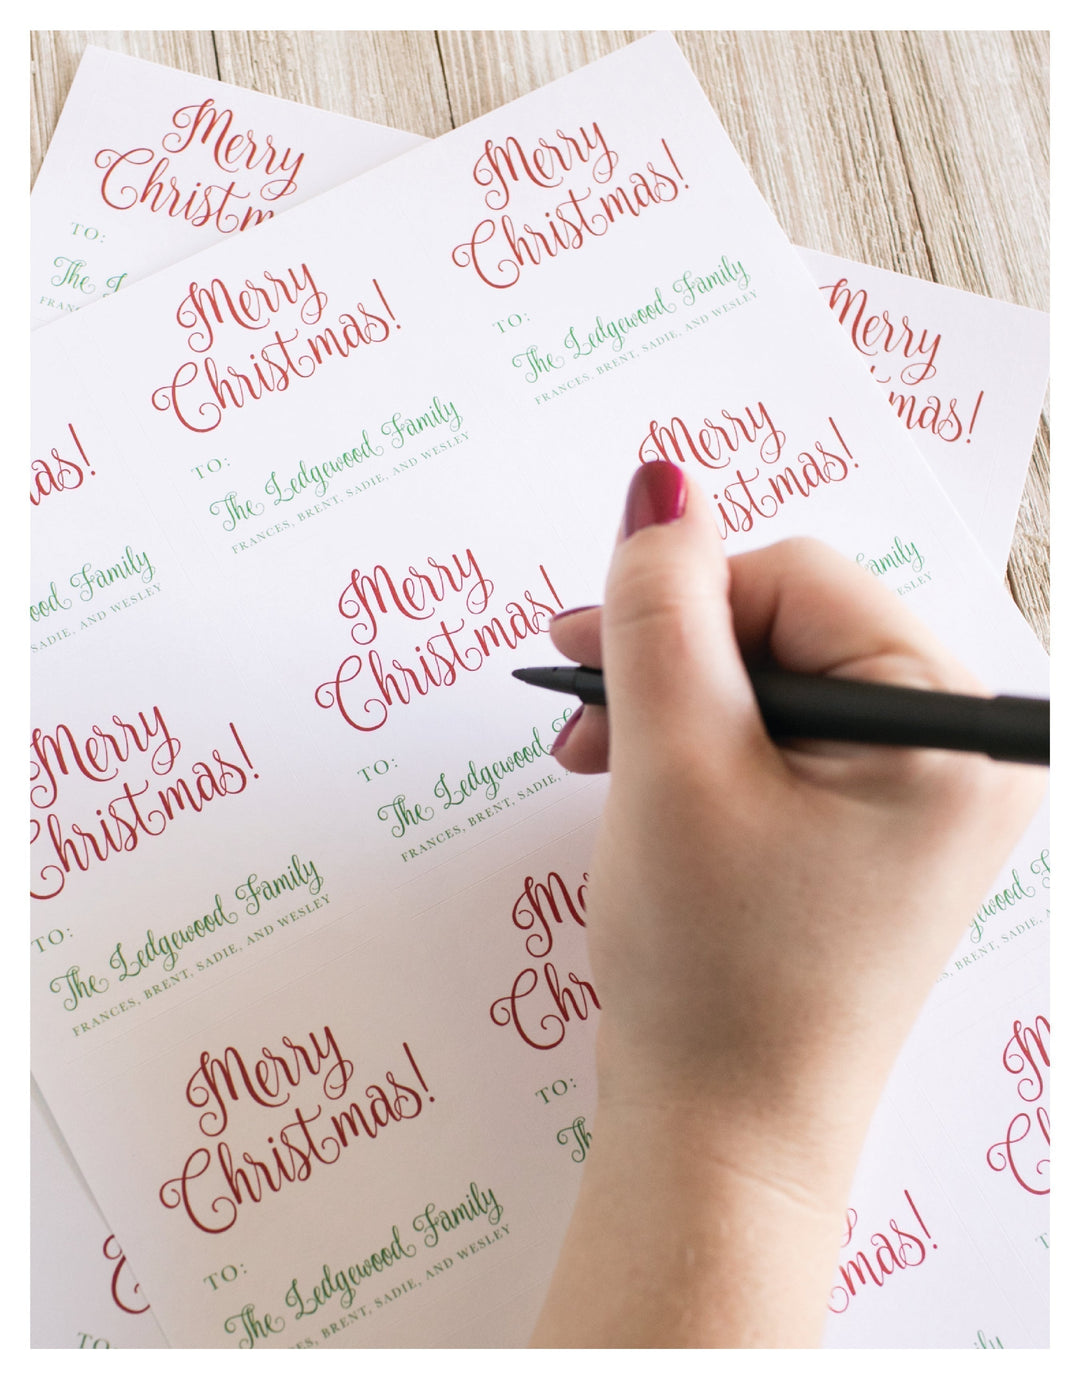 Merry
Christm
TO:
The
FRAN
Merry
Christmas!
TO:
The Ledgewood Family
FRANCES, BRENT, SADIE, AND WESLEY
Merry
Christmas!
TO:
The Ledgewood Family
FRANCES, BRENT, SADIE, AND WESLEY
Merry
mas!
as!
ood Family
SADIE, AND WESLEY
Merry
istmas!
amily
ESLEY
Merry
Christmas!
TO:
The Ledgewood
FRANCES, BRENT, SADIE,
Merry
Christmas!
TO:
The Ledgewood Family
FRANCES, BRENT, SADIE, AND WESLEY
Me
Chr
TO:
Th
Merry
Christmas!
TO:
The Ledgewood Family
FRANCES, BRENT, SADIE, AND WESLEY
gewood
M
C
mas!
mily
C
TO: